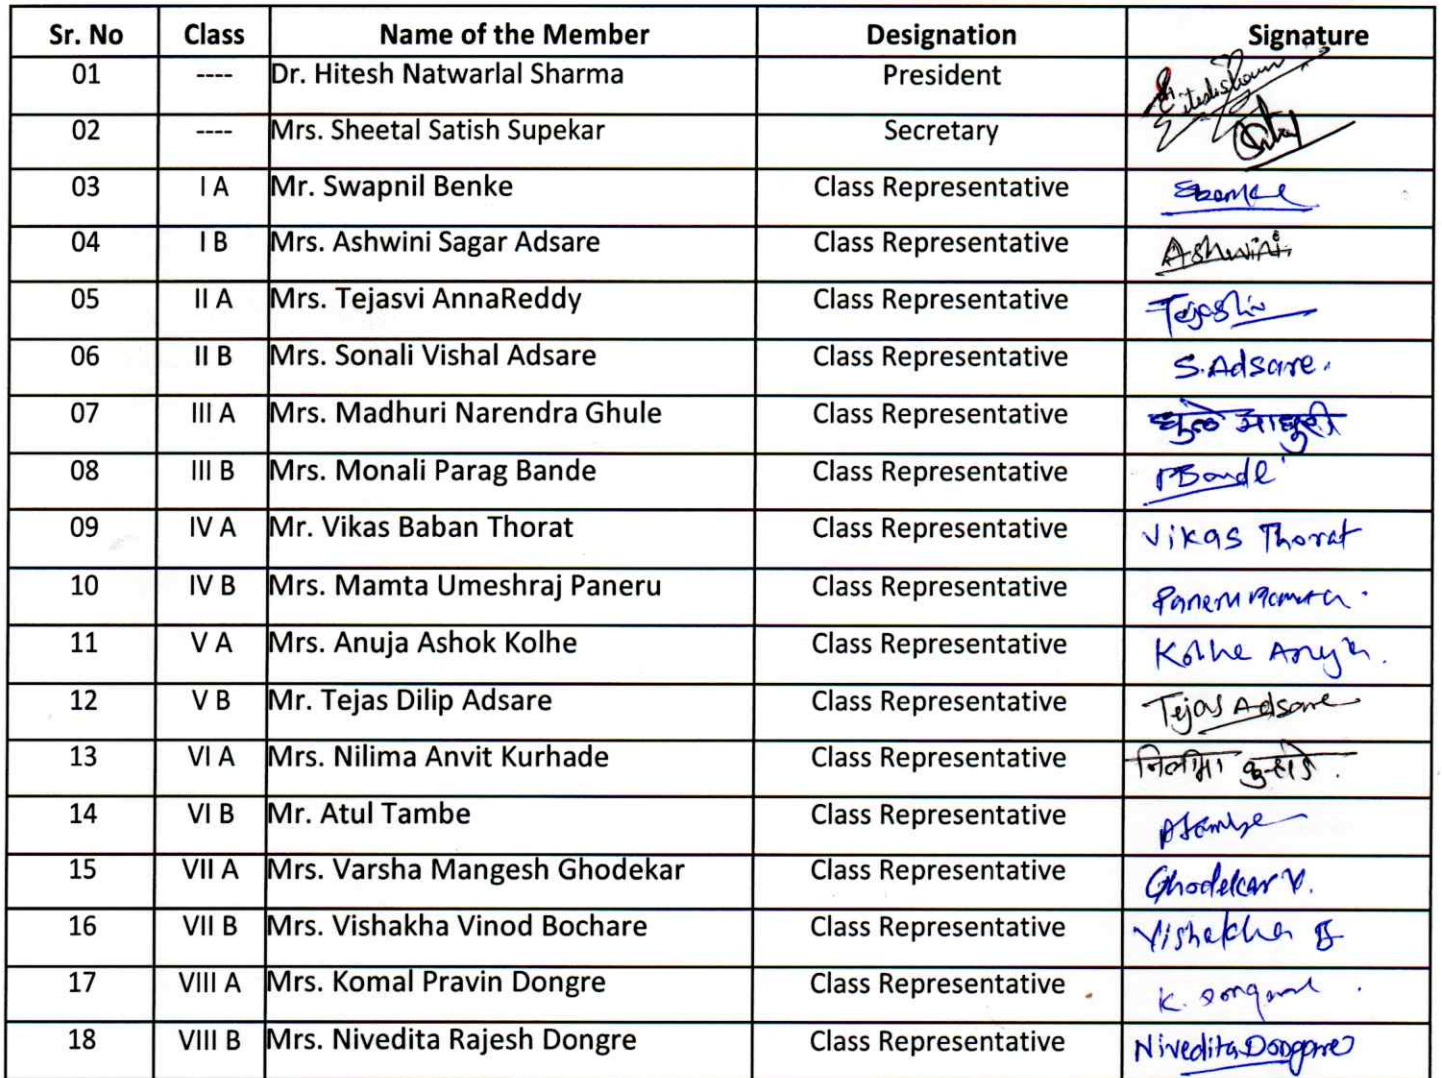 Sr. No Class Name of the Member Designation Signature
01 ---- Dr. Hitesh Natwarlal Sharma President
02 ---- Mrs. Sheetal Satish Supekar Secretary
03 I A Mr. Swapnil Benke Class Representative
04 I B Mrs. Ashwini Sagar Adsare Class Representative Ashwini
05 II A Mrs. Tejasvi AnnaReddy Class Representative
06 II B Mrs. Sonali Vishal Adsare Class Representative S.Adsare.
07 III A Mrs. Madhuri Narendra Ghule Class Representative घुले माधुरी
08 III B Mrs. Monali Parag Bande Class Representative
09 IV A Mr. Vikas Baban Thorat Class Representative Vikas Thorat
10 IV B Mrs. Mamta Umeshraj Paneru Class Representative Paneru Mamta.
11 V A Mrs. Anuja Ashok Kolhe Class Representative Kolhe Anuja.
12 V B Mr. Tejas Dilip Adsare Class Representative Tejas Adsare
13 VI A Mrs. Nilima Anvit Kurhade Class Representative निलीमा कुऱ्हाडे.
14 VI B Mr. Atul Tambe Class Representative ATambe
15 VII A Mrs. Varsha Mangesh Ghodekar Class Representative Ghodekar V.
16 VII B Mrs. Vishakha Vinod Bochare Class Representative Vishakha B
17 VIII A Mrs. Komal Pravin Dongre Class Representative
18 VIII B Mrs. Nivedita Rajesh Dongre Class Representative Nivedita Dongre